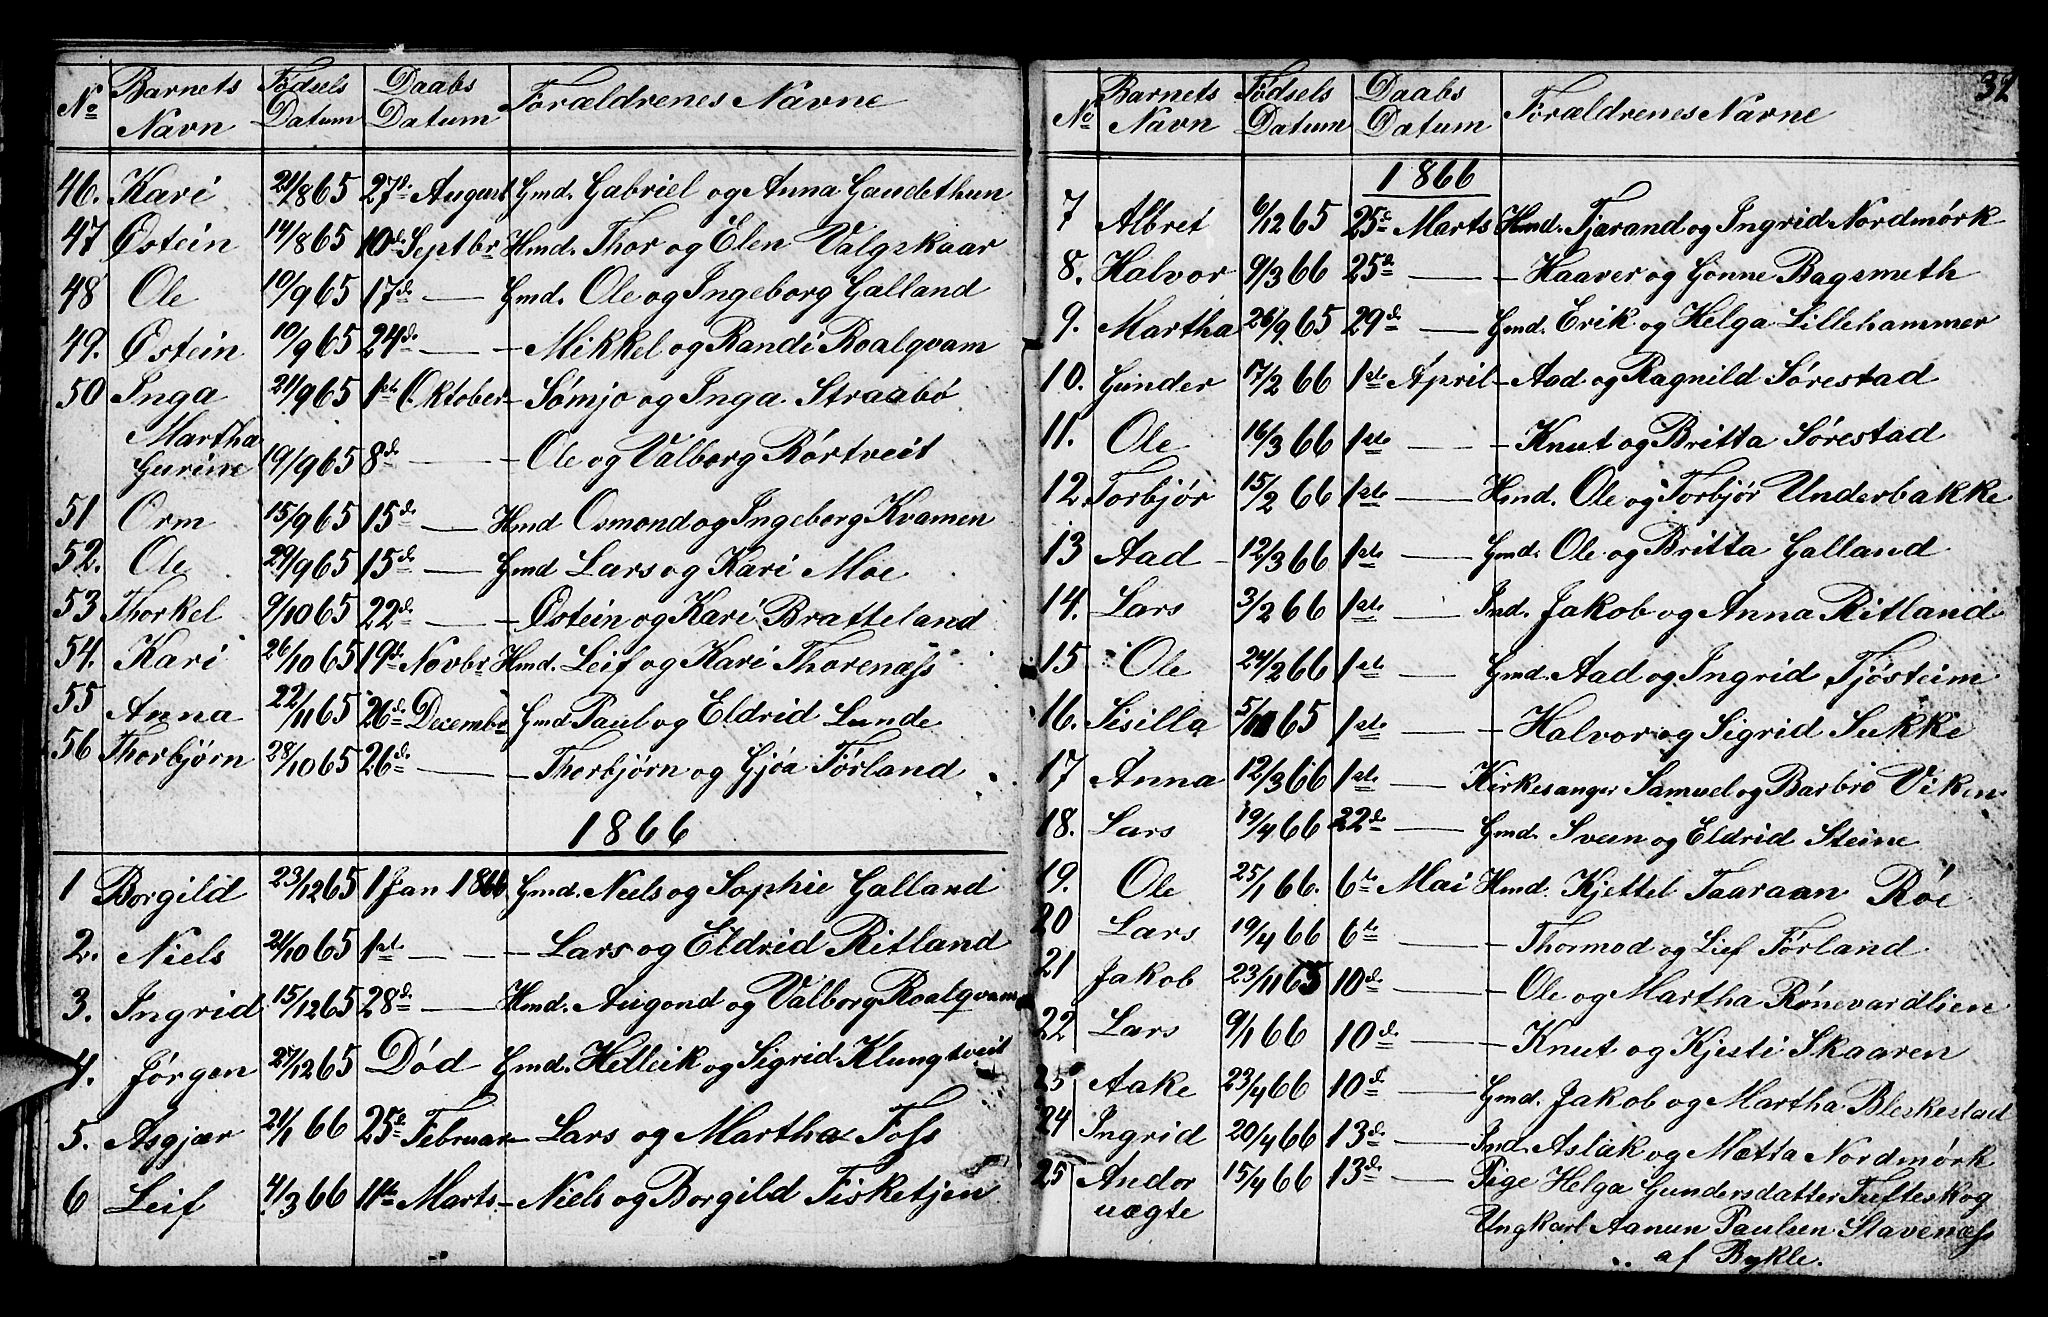 No Barnets Navn Fødsels Datum Daabs Datum Forældrenes Navne
46. Kari 21/8 65 27de August Gmd. Gabriel og Anna Gaudethun
47 Østein 14/8 65 10de Septbr Hmd. Thor og Elen Valgskaar
48 Ole 10/9 65 17de — Gmd. Ole og Ingeborg Galland
49. Østein 10/9 65 24de — - Mikkel og Randi Roalqvam
50 Inga 21/9 65 1ste Oktober - Sømjo og Inga Straabø
Martha
Gurine 19/9 65 8de — - Ole og Valborg Rørtveit
51 Orm 15/9 65 15de — Hmd Osmond og Ingeborg Kvamen
52. Ole 29/9 65 15de — Gmd Lars og Kari Moe
53 Thorkel 9/10 65 22de — - Østein og Kari Bratteland
54. Kari 26/10 65 19de Novbr Hmd. Leif og Kari Thorenæss
55 Anna 22/11 65 26de Decembr Gmd Paul og Eldrid Lunde
56 Thorbjørn 28/10 65 26de — - Thorbjørn og Gjøa Førland
1866
1 Borgild 23/12 65 1 Jan 1866 Gmd. Niels og Sophie Galland
2. Niels 21/10 65 1ste — - Lars og Eldrid Ritland
3. Ingrid 15/12 65 28de — Hmd. Augond og Valborg Roalqvam
4. Jørgen 27/12 65 Død Gmd. Helleik og Sigrid Klungtveit
5. Asgjær 21/1 66 25de Februar - Lars og Martha Foss
6 Leif 4/3 66 11te Marts - Niels og Borgild Fisketjen
32
No Barnets Navn Fødsels Datum Daabs Datum Forældrenes Navne
1866
7 Albret 6/12 65 25de Marts Hmd. Tjarand og Ingrid Nordmørk
8. Halvor 9/3 66 25de — - Haaver og Gønne Bagsmeth
9. Martha 26/9 65 29de — Gmd. Erik og Helga Lillehammer
10. Gunder 17/2 66 1ste April - Aad og Ragnild Sørestad
11. Ole 16/3 66 1ste — - Knut og Britta Sørestad
12 Torbjør 15/2 66 1ste — Hmd. Ole og Torbjør Underbakke
13 Aad 12/3 66 1ste — Gmd. Ole og Britta Galland
14. Lars 3/2 66 1ste — Ind. Jakob og Anna Ritland
15 Ole 24/2 66 1ste — Gmd. Aad og Ingrid Tjøsteim
16. Sisilla 5/11 65 1ste — - Halvor og Sigrid Sukke
17 Anna 12/3 66 1ste — Kirkesanger Samuel og Barbro Viken
18. Lars 19/4 66 22de — Gmd. Sveen og Eldrid Steine
19. Ole 25/1 66. 6te Mai Hmd. Kjettel Taaraan Røe
20 Lars 19/4 66 6te — - Thormod og Lief Førland
21 Jakob 23/11 65 10de — - Ole og Martha Rønevardlien
22 Lars 9/1 66 10de — - Knut og Kjesti Skaaren
23 Aake 23/4 66 10de — Gmd. Jakob og Martha Bleskestad
24 Ingrid 20/4 66 13de — Ind. Aslak og Mætta Nordmørk
25 Andor 15/4 66 13de — Pige Helga Gundersdatter Tufteskog
uægte Ungkarl Aanun Paulsen Stavenæss
af Bykle.